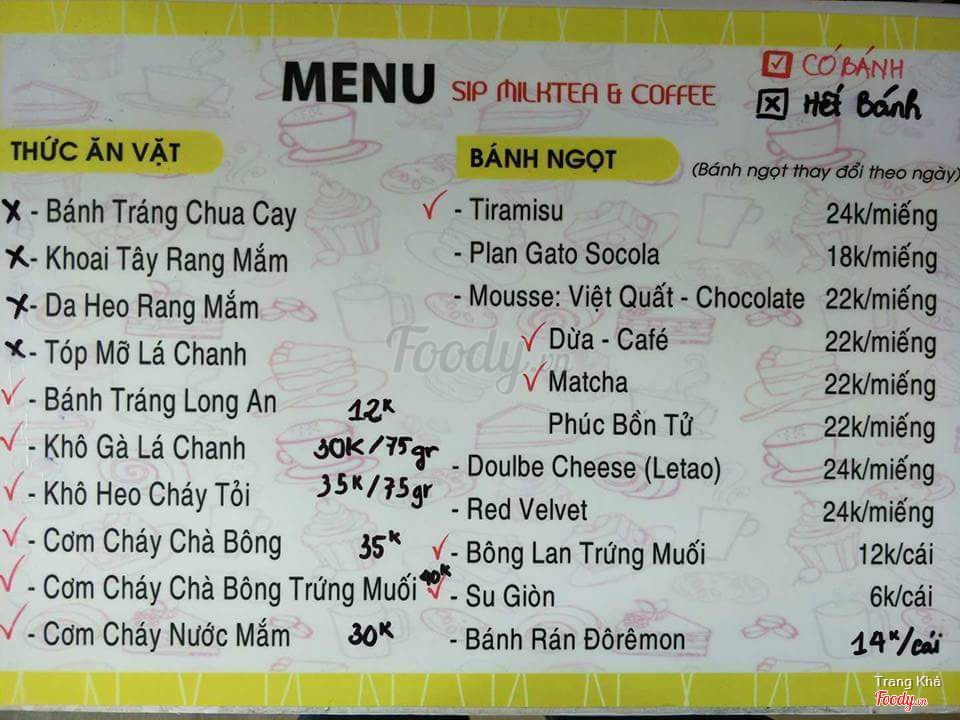 MENU SIP MILKTEA & COFFEE
☑ CÓ BÁNH
☒ HẾT BÁNH
THỨC ĂN VẶT
x - Bánh Tráng Chua Cay
x - Khoai Tây Rang Mắm
x - Da Heo Rang Mắm
x - Tóp Mỡ Lá Chanh
✓ - Bánh Tráng Long An 12K
✓ - Khô Gà Lá Chanh 30K/75gr
✓ - Khô Heo Cháy Tỏi 35K/75gr
✓ - Cơm Cháy Chà Bông 35K
✓ - Cơm Cháy Chà Bông Trứng Muối 40K
✓ - Cơm Cháy Nước Mắm 30K
BÁNH NGỌT (Bánh ngọt thay đổi theo ngày)
✓ - Tiramisu 24k/miếng
- Plan Gato Socola 18k/miếng
- Mousse: Việt Quất - Chocolate 22k/miếng
✓ Dừa - Café 22k/miếng
✓ Matcha 22k/miếng
Phúc Bồn Tử 22k/miếng
- Doulbe Cheese (Letao) 24k/miếng
- Red Velvet 24k/miếng
✓ - Bông Lan Trứng Muối 12k/cái
✓ - Su Giòn 6k/cái
- Bánh Rán Đôrêmon 14K/cái
Foody.vn
Trang Khả
Foody.vn